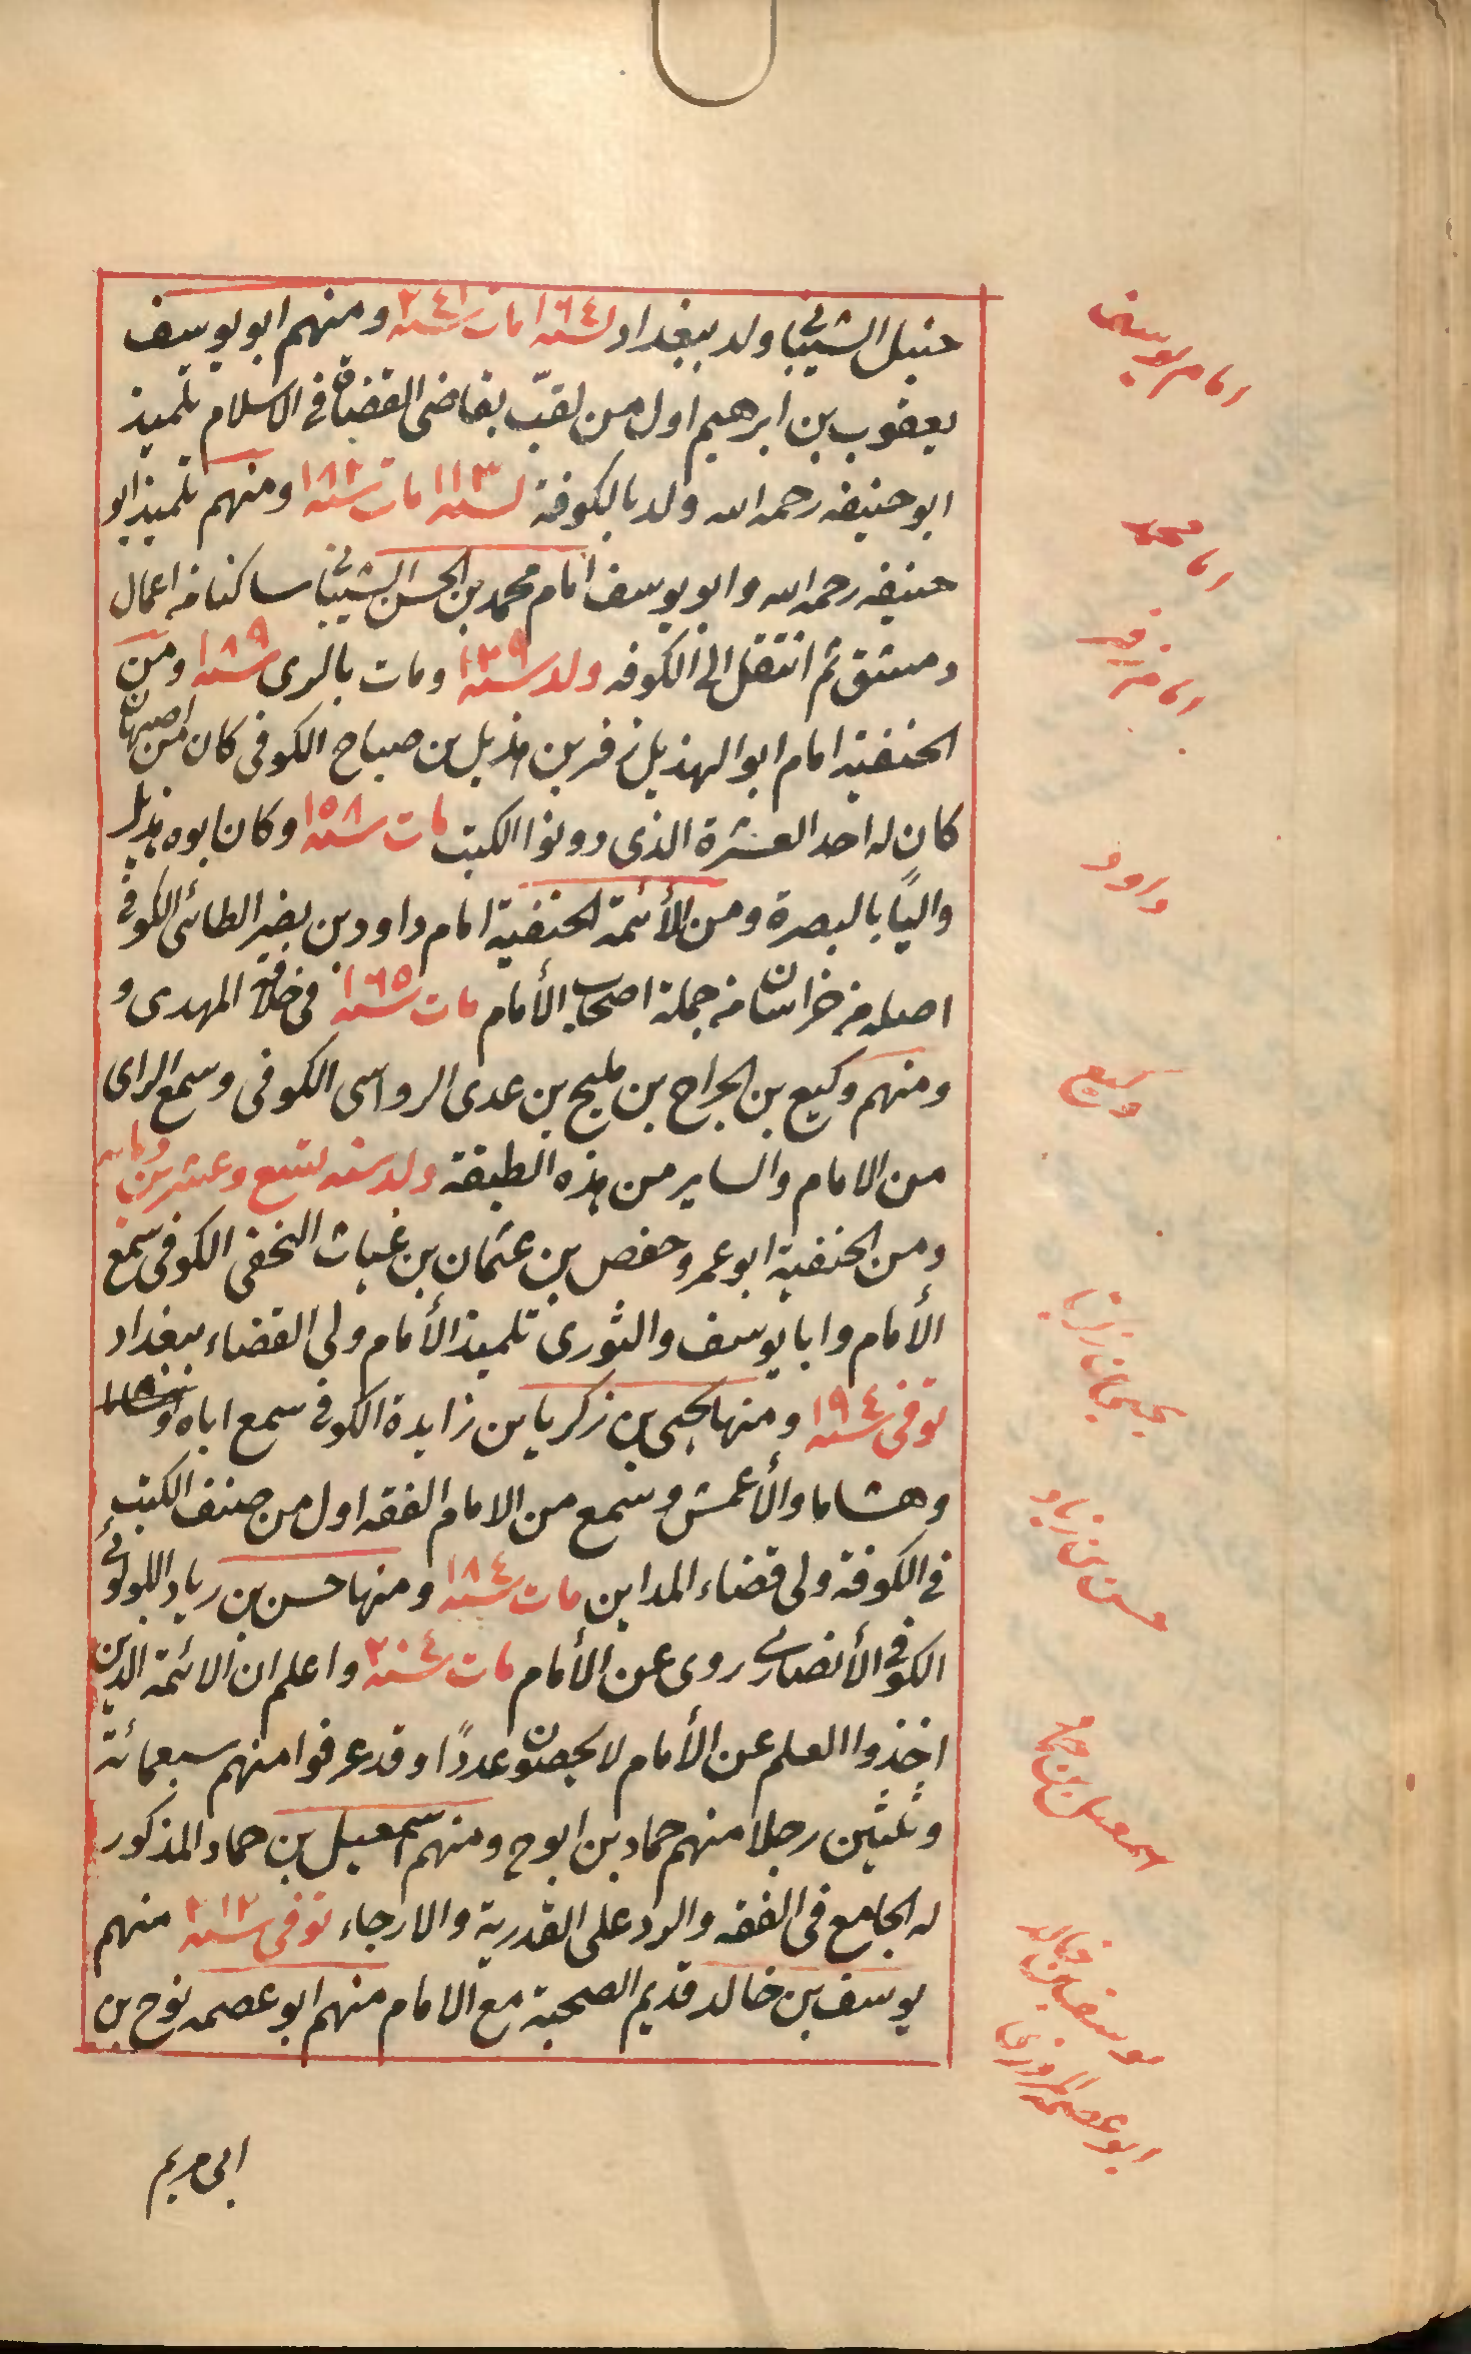 حنبل الشيبانى ولد ببغداد لسنه ١٦٤ مات سنه ٢٤١ ومنهم ابو يوسف
يعقوب بن ابرهيم اول من لقّب بقاضى القضاة فى الاسلام تلميذ
ابو حنيفه رحمه الله ولد بالكوفة لسنه ١١٣ مات سنه ١٨٢ ومنهم تلميذ ابو
حنيفه رحمه الله وابو يوسف امام محمد بن الحسن الشيبانى ساكنا من اعمال
دمشق ثم انتقل الى الكوفه ولد سنه ١٣٩ ومات بالرى سنه ١٨٩ ومن
الحنفية امام ابو الهذيل زفر بن هذيل بن صباح الكوفى كان من اصبهان
كان له احد العشرة الذى دونوا الكتب مات سنه ١٥٨ وكان ابوه هذيل
والياً بالبصرة ومن الأئمة الحنفية امام داود بن بضر الطائى الكوفى
اصله من خراسان من جملة اصحاب الأمام مات سنه ١٦٥ فى خلافة المهدى و
ومنهم وكيع بن الجراح بن مليح بن عدى الرواسى الكوفى وسمع الراى
من الامام والساير من هذه الطبقة ولد سنه لتسع وعشرين ومايه
ومن الحنفية ابو عمر وحفص بن عثمان بن غياث النخفى الكوفى سمع
الأمام وابا يوسف والثورى تلميذ الأمام ولى القضاء ببغداد
توفى سنه ١٩٤ ومنها يحيى بن زكريا بن زايدة الكوفى سمع اباه
وهشاما والأعمش وسمع من الامام الفقه اول من صنف الكتب
فى الكوفة ولى قضاء المداين مات سنه ١٨٤ ومنها حسن بن زياد اللولوئى
الكوفى الأنصارى روى عن الأمام مات سنه ٢٠٤ واعلم ان الائمة الذين
اخذوا العلم عن الأمام لا يحصون عدداً وقد عرفوا منهم سبعمائة
وثلثين رجلا منهم حماد بن ابوح ومنهم اسمعيل بن حماد المذكور
له الجامع فى الفقه والرد على القدرية والارجاء توفى سنه ٢١٢ منهم
يوسف بن خالد قديم الصحبة مع الامام منهم ابو عصمه نوح بن
ابى مريم
امام يوسف
امام محمد
امام زفر
داود
وكيع
حسن بن زياد
اسمعيل بن حماد
يوسف بن خالد
ابو عصمة المروزى